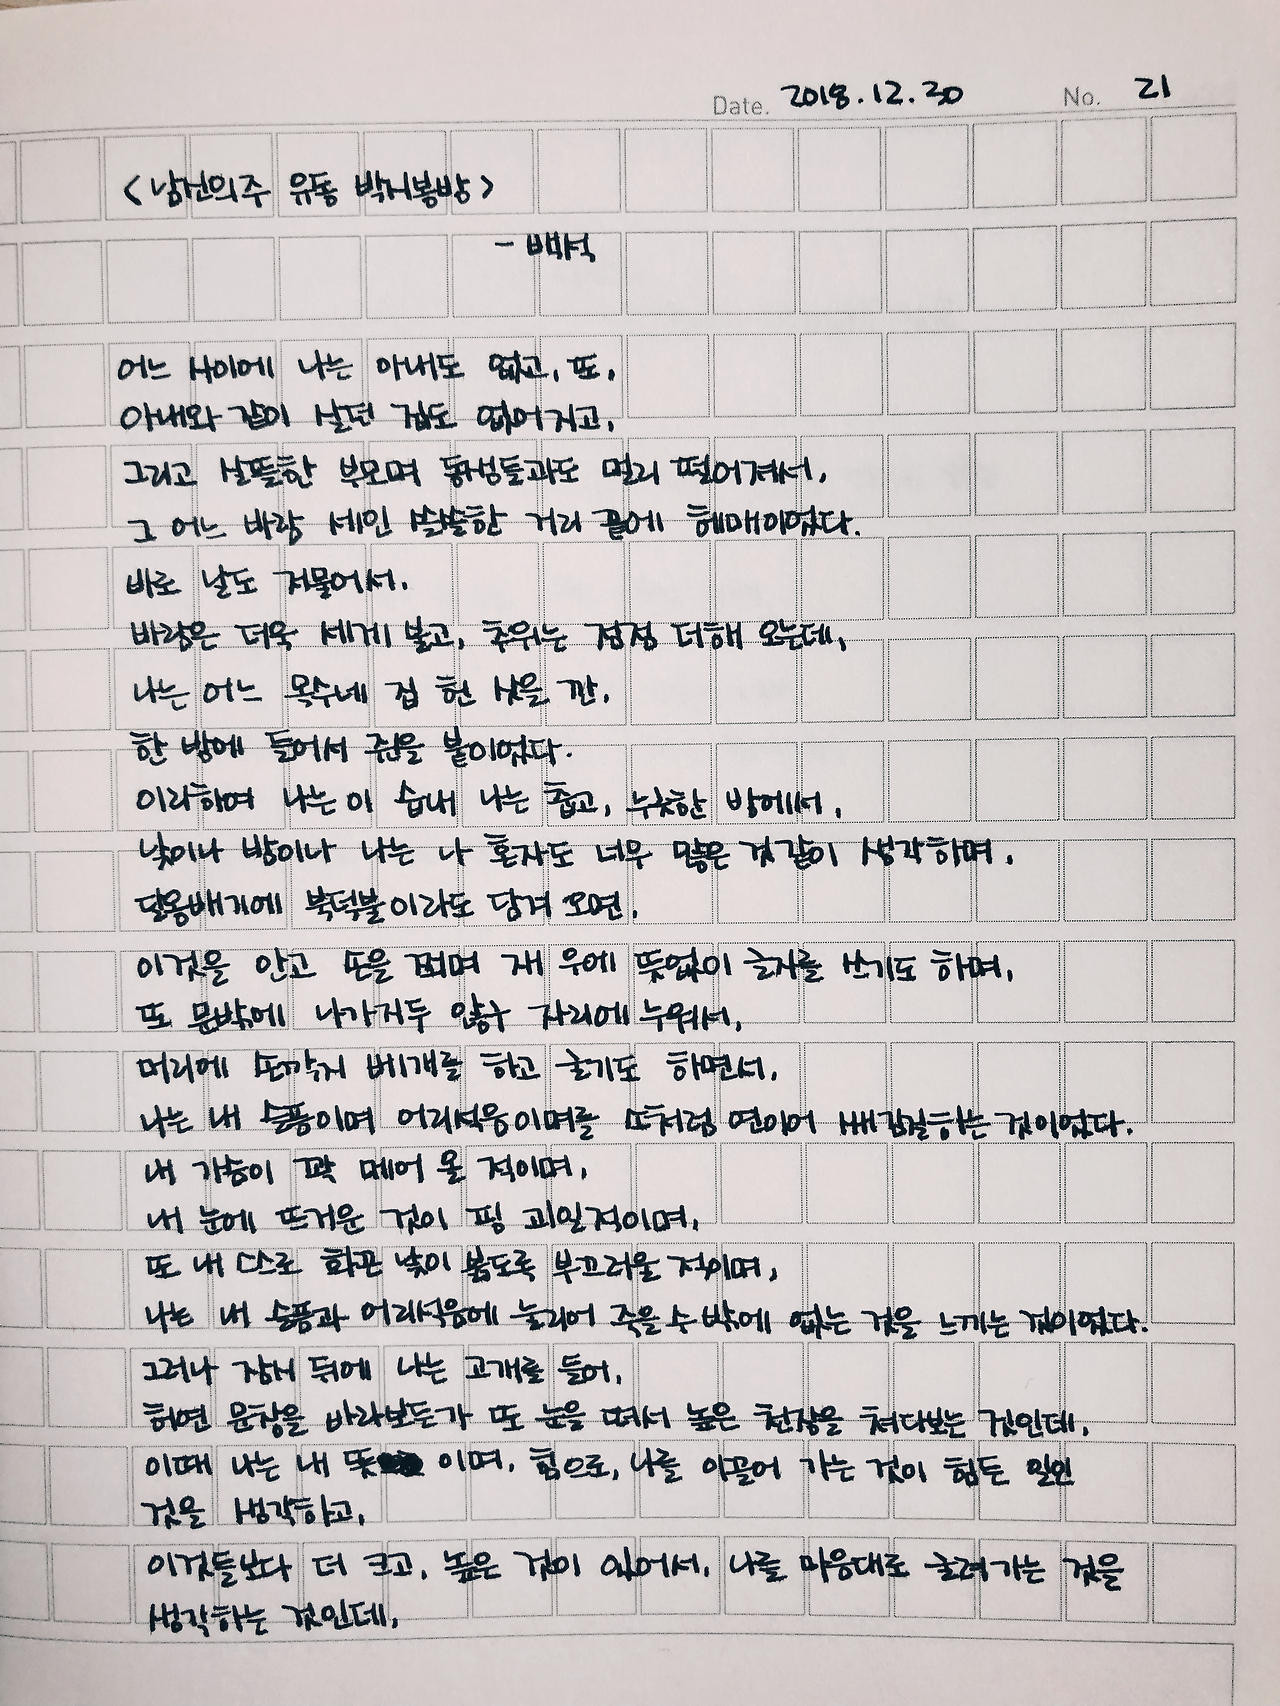 Date. 2018.12.30 No. 21
<남신의주 유동 박시봉방>
- 백석
어느 사이에 나는 아내도 없고, 또,
아내와 같이 살던 집도 없어지고,
그리고 살뜰한 부모며 동생들과도 멀리 떨어져서,
그 어느 바람 세인 쓸쓸한 거리 끝에 헤매이었다.
바로 날도 저물어서.
바람은 더욱 세게 불고, 추위는 점점 더해 오는데,
나는 어느 목수네 집 헌 삿을 깐,
한 방에 들어서 쥔을 붙이었다.
이리하여 나는 이 습내 나는 춥고, 누긋한 방에서,
낮이나 밤이나 나는 나 혼자도 너무 많은 것 같이 생각하며,
딜옹배기에 북덕불이라도 담겨 오면,
이것을 안고 손을 쬐며 재 우에 뜻없이 글자를 쓰기도 하며,
또 문밖에 나가지두 않구 자리에 누워서,
머리에 손깍지 베개를 하고 굴기도 하면서,
나는 내 슬픔이며 어리석음이며를 소처럼 연이어 쌔김질하는 것이었다.
내 가슴이 꽉 메어 올 적이며,
내 눈에 뜨거운 것이 핑 괴일 적이며,
또 내 스스로 화끈 낯이 붉도록 부끄러울 적이며,
나는 내 슬픔과 어리석음에 눌리어 죽을 수 밖에 없는 것을 느끼는 것이었다.
그러나 잠시 뒤에 나는 고개를 들어,
허연 문창을 바라보든가 또 눈을 떠서 높은 천장을 쳐다보는 것인데,
이때 나는 내 뜻이며, 힘으로, 나를 이끌어 가는 것이 힘든 일인
것을 생각하고,
이것들보다 더 크고, 높은 것이 있어서, 나를 마음대로 굴려가는 것을
생각하는 것인데,